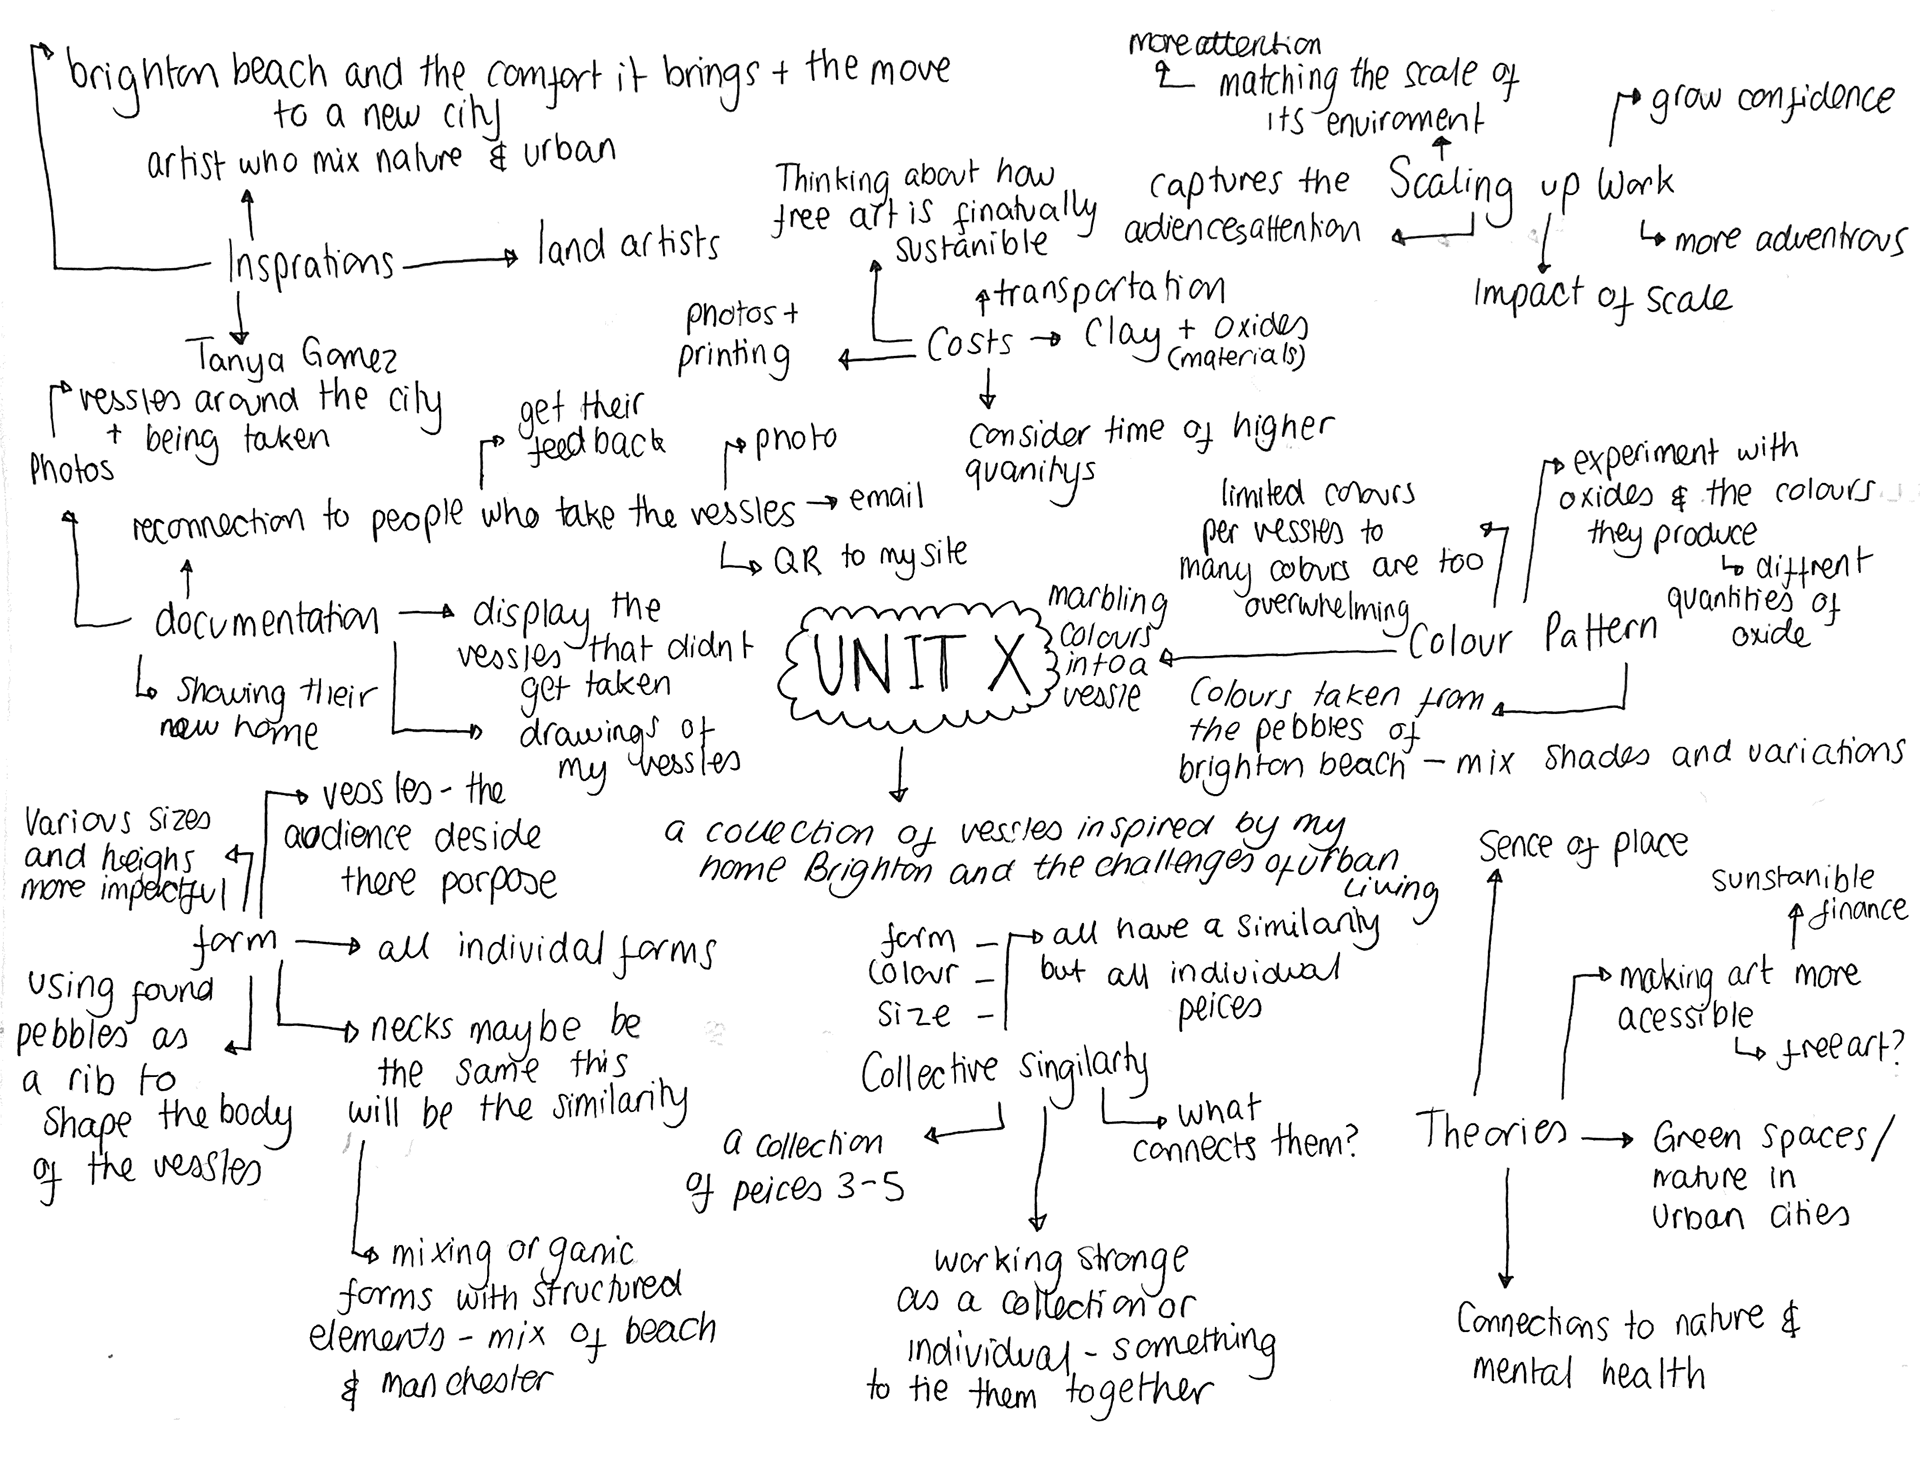 brighton beach and the comfort it brings + the move
to a new city
artist who mix nature & urban
Insprations
land artists
Tanya Gomez
more attention
matching the scale of
its enviroment
grow confidence
captures the
adiences attention
Scaling up Work
more adventrous
Impact of scale
Thinking about how
free art is finatually
sustanible
transportation
photos +
printing
Costs
Clay + oxides
(materials)
consider time of higher
quanitys
vessles around the city
+ being taken
Photos
get their
feedback
photo
reconnection to people who take the vessles
email
QR to my site
documentation
display the
vessles that didnt
get taken
showing their
new home
drawings of
my vessles
limited colours
per vessles to
many colours are too
overwhelming
experiment with
oxides & the colours
they produce
diffrent
quantities of
oxide
Colour Pattern
marbling
colours
into a
vessle
Colours taken from
the pebbles of
brighton beach - mix shades and variations
UNIT X
a collection of vessles inspired by my
home Brighton and the challenges of urban
living
vessles - the
audience deside
there porpose
Various sizes
and heighs
more impactful
form
all individal forms
using found
pebbles as
a rib to
shape the body
of the vessles
necks maybe be
the same this
will be the similarity
mixing organic
forms with structured
elements - mix of beach
& manchester
form -
colour -
size -
all have a similarity
but all individual
peices
Collective singilarty
a collection
of peices 3-5
what
connects them?
working stronge
as a collection or
individual - something
to tie them together
Sence of place
sunstanible
finance
making art more
acessible
free art?
Theories
Green spaces/
nature in
urban cities
Connections to nature &
mental health